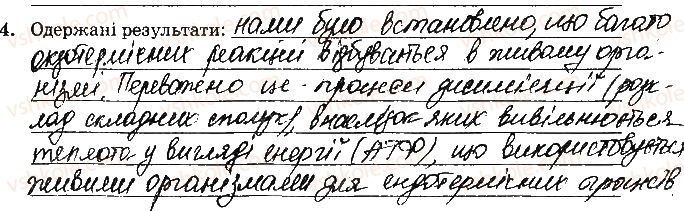 4. Одержані результати: нами було встановлено, що багато
екзотермічних реакцій відбувається в живому орга-
нізмі. Переважно це - процеси дисиміляції (роз-
клад складних сполук), внаслідок яких вивільнюється
теплота у вигляді енергії (АТФ), що використовується
живими організмами для ендотермічних процесів